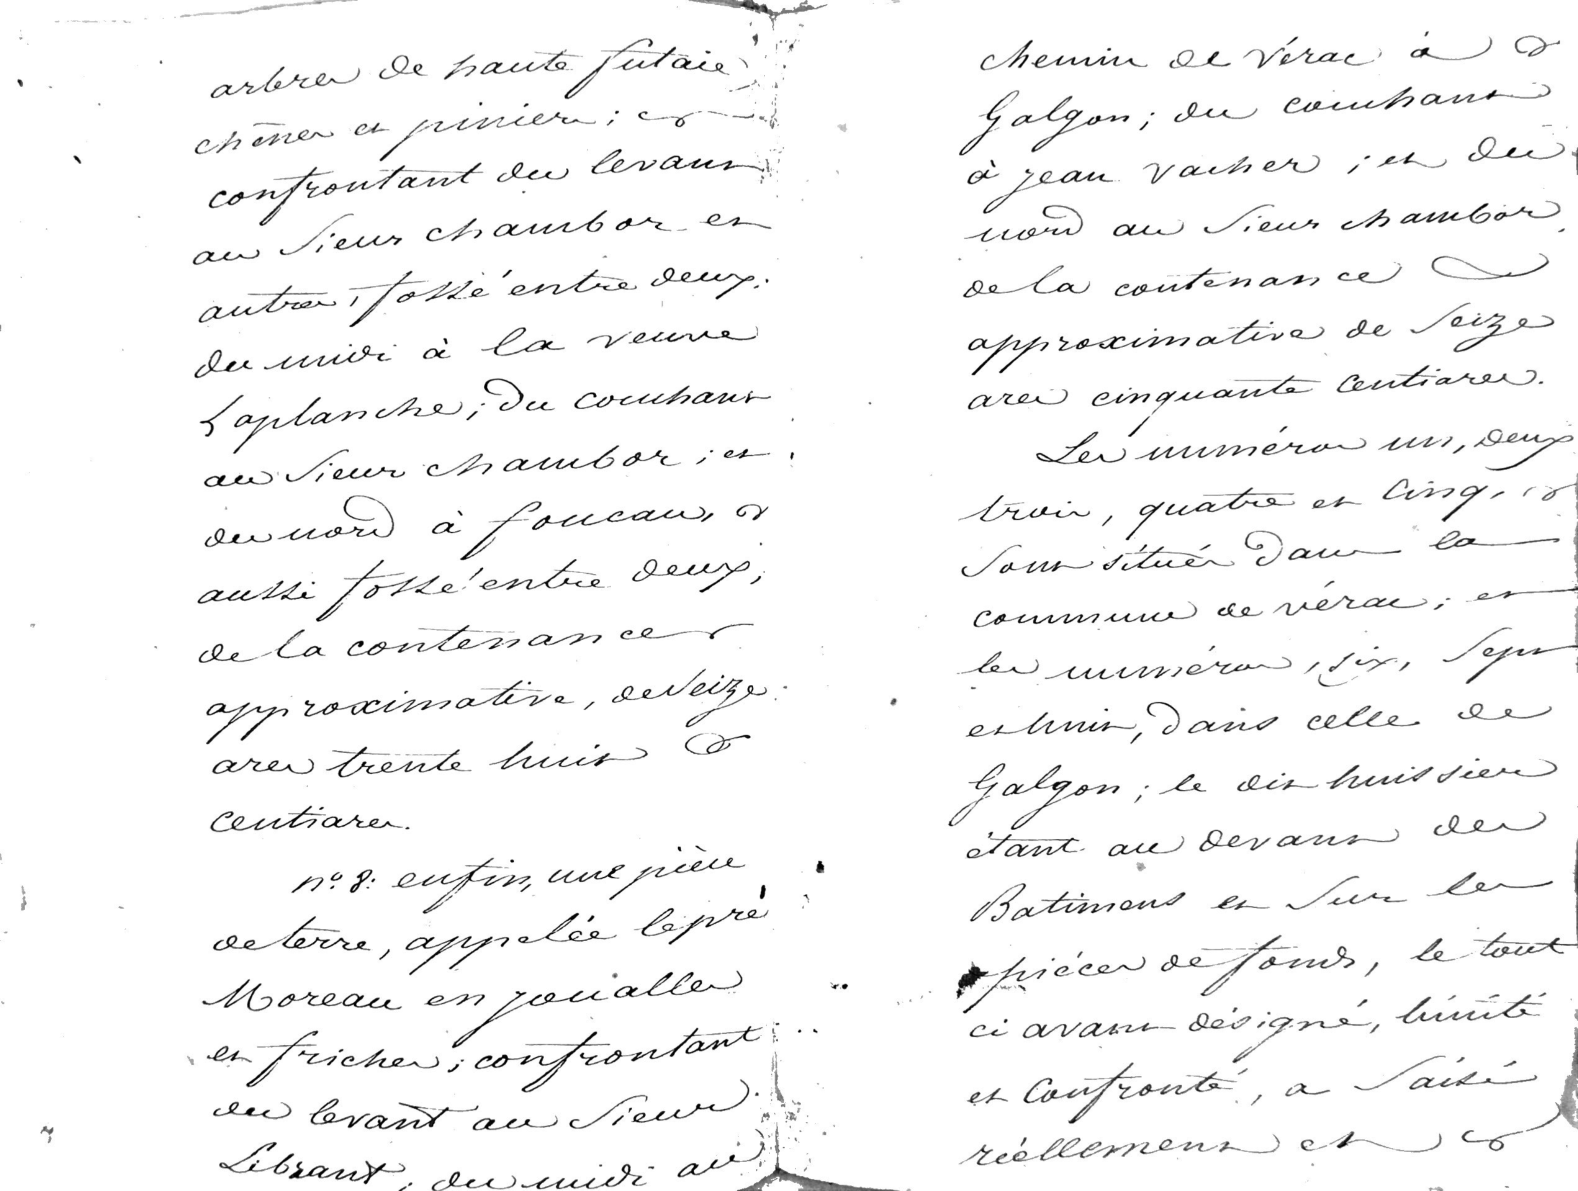 arbres de haute futaie
chênes et piniers ; et
confrontant du levant
au Sieur chambor et
autres, fossé entre deux.
du midi à la veuve
Laplanche ; du couchant
au Sieur chambor ; et
du nord à foucau,
aussi fossé entre deux,
de la contenance
approximative, de Seize
ares trente huit
Centiares.
n.° 8: enfin, une pièce
de terre, appelée le pré
Moreau en joualles
et friches ; confrontant
du levant au Sieur
Librant, du midi au
chemin de vérac à
Galgon ; du couchant
à jean vacher ; et du
nord au Sieur chambor,
de la contenance
approximative de Seize
ares cinquante Centiares.
Les numéros un, deux
trois, quatre et Cinq,
Sont situés Dans la
commune de vérac ; et
les numéros, six, Sept
et huit, Dans celle de
Galgon ; le dit huissier
étant au devant des
Batimens et Sur les
pièces de fonds, le tout
ci avant désigné, limité
et Confronté, a Saisi
réellement et